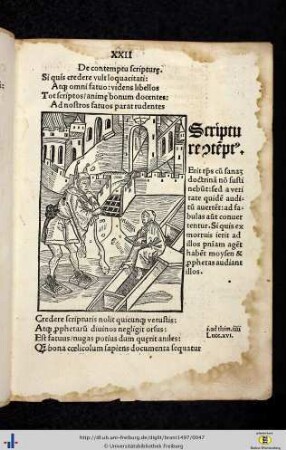 XXII
De contemptu scripturę.
Si quis credere vult loquacitati:
Atq; omni fatuo: videns libellos
Tot scriptos/animę bonum docentes:
Ad nostros fatuos parat rudentes
Scriptu
re ɔtēpt9.
Erit tp̄s cū sanaʒ
doctrinā nō susti
nebūt: sed a veri
tate quidē auditū
auertēt: ad fa
bulas aūt conuer
tentur. Si quis ex
mortuis ierit ad
illos pniam agēt
habēt moysen &
ꝓphetas audiant
illos.
Credere scripturis nolit quicunq; vetustis:
Atq; ꝓphetarū diuinos negligit orsus:
Est fatuus: nugas potius dum querit aniles:
Qȝ bona cœlicolum sapiens documenta sequatur
ij. ad thim. iiij
Luce. xvi.
http://dl.ub.uni-freiburg.de/diglit/brant1497/0047
© Universitätsbibliothek Freiburg